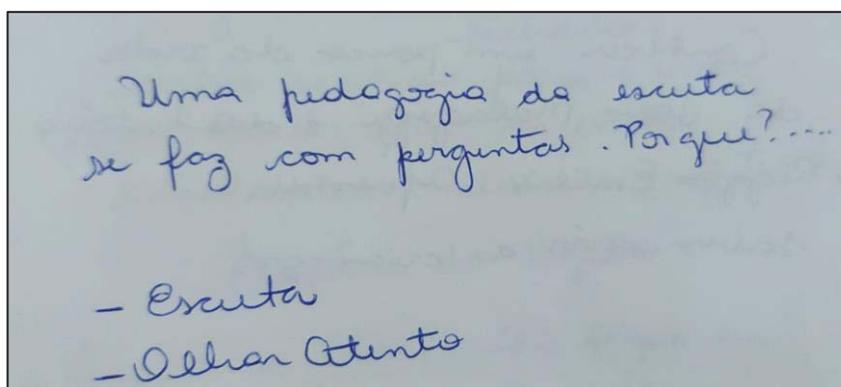 Uma pedagogia da escuta
se faz com perguntas. Porque?....
- Escuta
- Olhar Atento